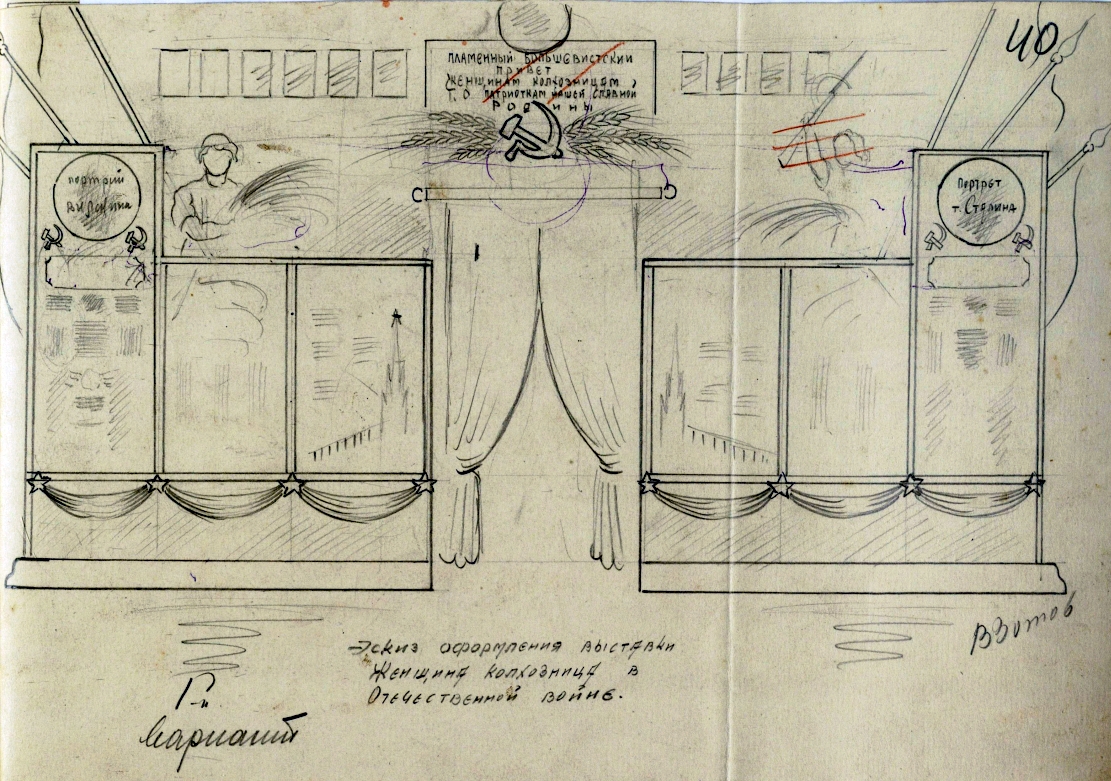 40
ПЛАМЕННЫЙ БОЛЬШЕВИСТСКИЙ
ПРИВЕТ
ЖЕНЩИНАМ КОЛХОЗНИЦАМ,
Т.О ПАТРИОТКАМ НАШЕЙ СЛАВНОЙ
РОДИНЫ
портрай
В И Ленина
Портрет
т. Сталина
Эскиз оформления выставки
Женщина колхозница в
Отечественной войне.
В Зотов
1-й
вариант